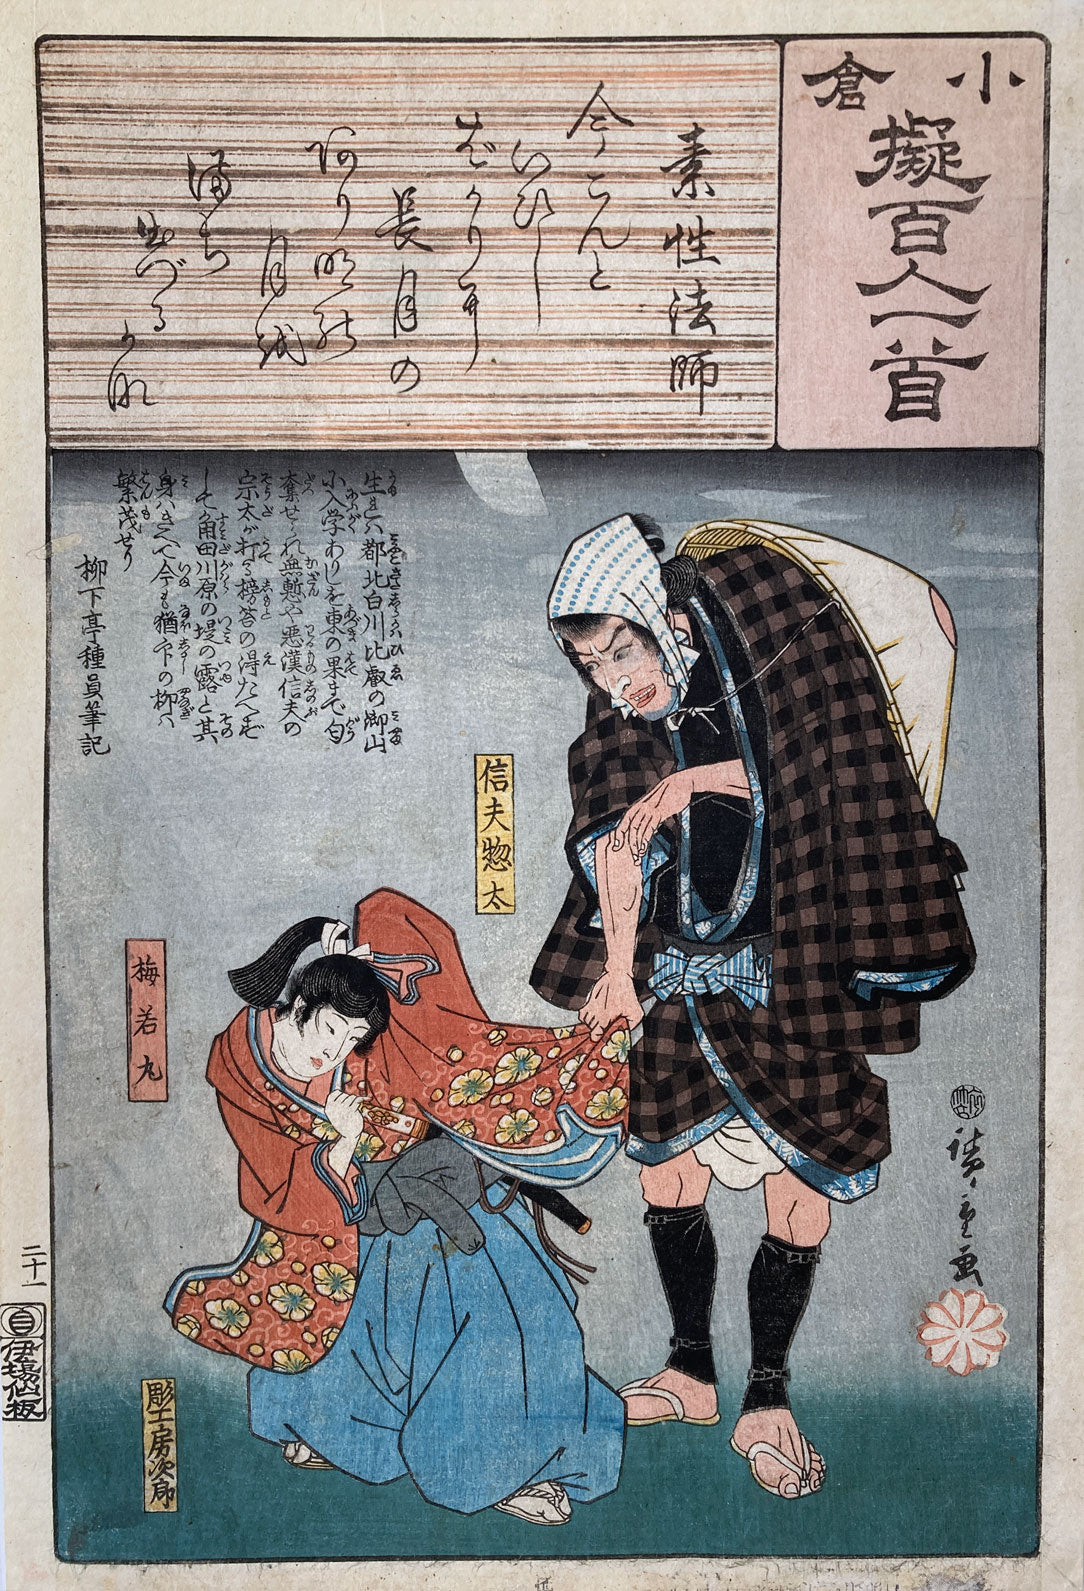 小倉
擬百人一首
素性法師
今こんと
いひし
ばかりに
長月の
あり明の
月を
待ち
出づる
かな
生れハ都北白川比叡の御山
小入学ありしを東の果まで勾
奪せられ無慙や悪漢信夫の
宗太が打る榜笞の得たへず
して角田川原の堤の露と其
身ハきへて今も猶印の柳ハ
繁茂せり
柳下亭種員筆記
信夫惣太
梅若丸
廣重画
二十一
伊場仙板
彫工房次郎